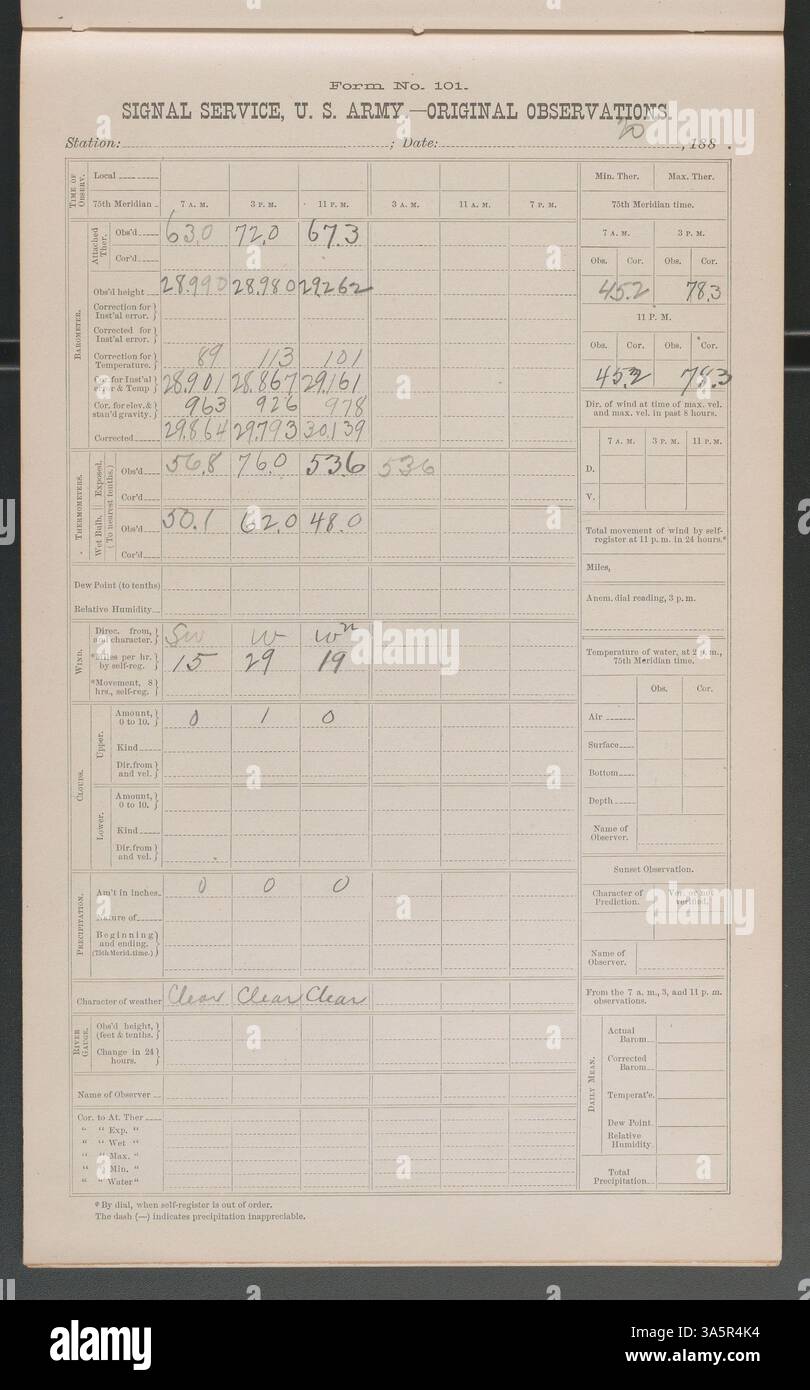 Form No. 101.
SIGNAL SERVICE, U. S. ARMY.—ORIGINAL OBSERVATIONS.
Station: ; Date: 20 , 188 .
TIME OF OBSERV.
Local
75th Meridian 7 A. M. 3 P. M. 11 P. M. 3 A.M. 11 A. M. 7 P. M.
BAROMETER.
Attached Ther.
Obs'd 63.0 72.0 67.3
Cor'd
Obs'd height 28.990 28.980 29.262
Correction for Inst'al error.
Corrected for Inst'al error.
Correction for Temperature. 89 113 101
Cor. for Inst'al error & Temp 28.901 28.867 29.161
Cor. for elev. & stan'd gravity. 963 926 978
Corrected 29.864 29.793 30.139
THERMOMETERS.
Exposed. (To nearest tenths.)
Obs'd 56.8 76.0 53.6 536
Cor'd
Wet Bulb.
Obs'd 50.1 62.0 48.0
Cor'd
Dew Point (to tenths)
Relative Humidity
WIND.
Direc. from, and character. Sw w wn
*Miles per hr. by self-reg. 15 29 19
*Movement, 8 hrs., self-reg.
CLOUDS.
Upper.
Amount, 0 to 10. 0 1 0
Kind
Dir. from and vel.
Lower.
Amount, 0 to 10.
Kind
Dir. from and vel.
PRECIPITATION.
Am't in inches 0 0 0
Nature of
Beginning and ending. (75th Merid. time.)
Character of weather Clear Clear Clear
RIVER GAUGE.
Obs'd height, (feet & tenths.
Change in 24 hours.
Name of Observer
Cor. to At. Ther
“ “ Exp. “
“ “ Wet “
“ “ Max. “
“ “ Min. “
“ “ Water “
* By dial, when self-register is out of order.
The dash (—) indicates precipitation inappreciable.
Min. Ther. Max. Ther.
75th Meridian time.
7 A. M. 3 P. M.
Obs. Cor. Obs. Cor.
45.2 78.3
11 P. M.
Obs. Cor. Obs. Cor.
45.2 78.3
Dir. of wind at time of max. vel. and max. vel. in past 8 hours.
7 A. M. 3 P. M. 11 P. M.
D.
V.
Total movement of wind by self-register at 11 p. m. in 24 hours.*
Miles,
Anem. dial reading, 3 p. m.
Temperature of water, at 2 p. m., 75th Meridian time.
Obs. Cor.
Air
Surface
Bottom
Depth
Name of Observer.
Sunset Observation.
Character of Prediction. Ver. or not verified.
Name of Observer.
From the 7 a. m., 3, and 11 p. m. observations.
DAILY MEAN.
Actual Barom
Corrected Barom
Temperat'e.
Dew Point.
Relative Humidity
Total Precipitation
alamy
Image ID: 3A5R4K4
www.alamy.com